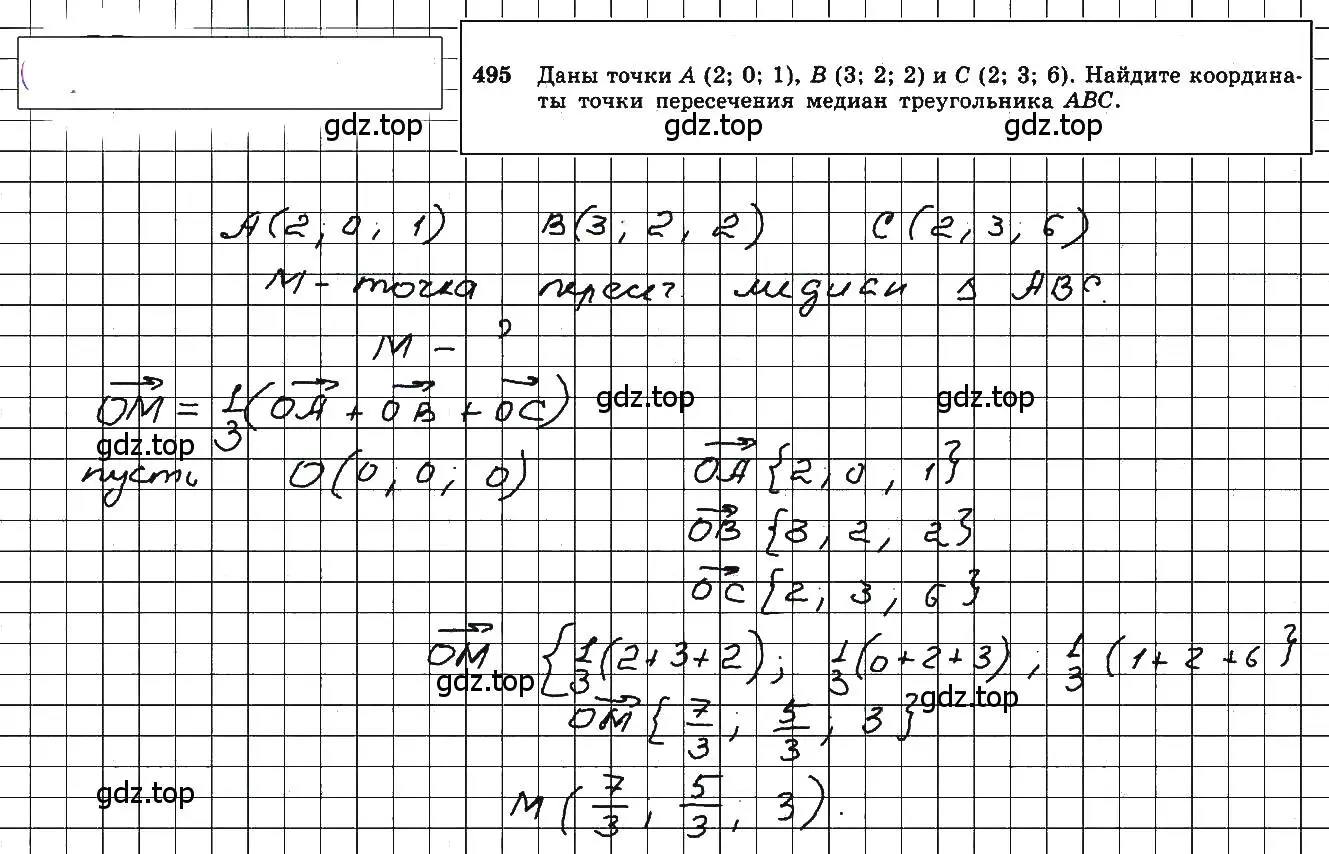 495 Даны точки A (2; 0; 1), B (3; 2; 2) и C (2; 3; 6). Найдите координа-
ты точки пересечения медиан треугольника ABC.
gdz.top gdz.top gdz.top
A(2; 0; 1) B(3; 2; 2) C(2; 3; 6)
M - точка пересеч. медиан Δ ABC.
M - ?
OM = 1/3 (OA + OB + OC) gdz.top gdz.top
gdz.top
пусть O(0; 0; 0) OA {2; 0; 1}
OB {3; 2; 2}
OC {2; 3; 6}
OM {1/3 (2+3+2); 1/3 (0+2+3); 1/3 (1+2+6}
gdz.top gdz.top
OM {7/3; 5/3; 3}
gdz.top
M (7/3; 5/3; 3).